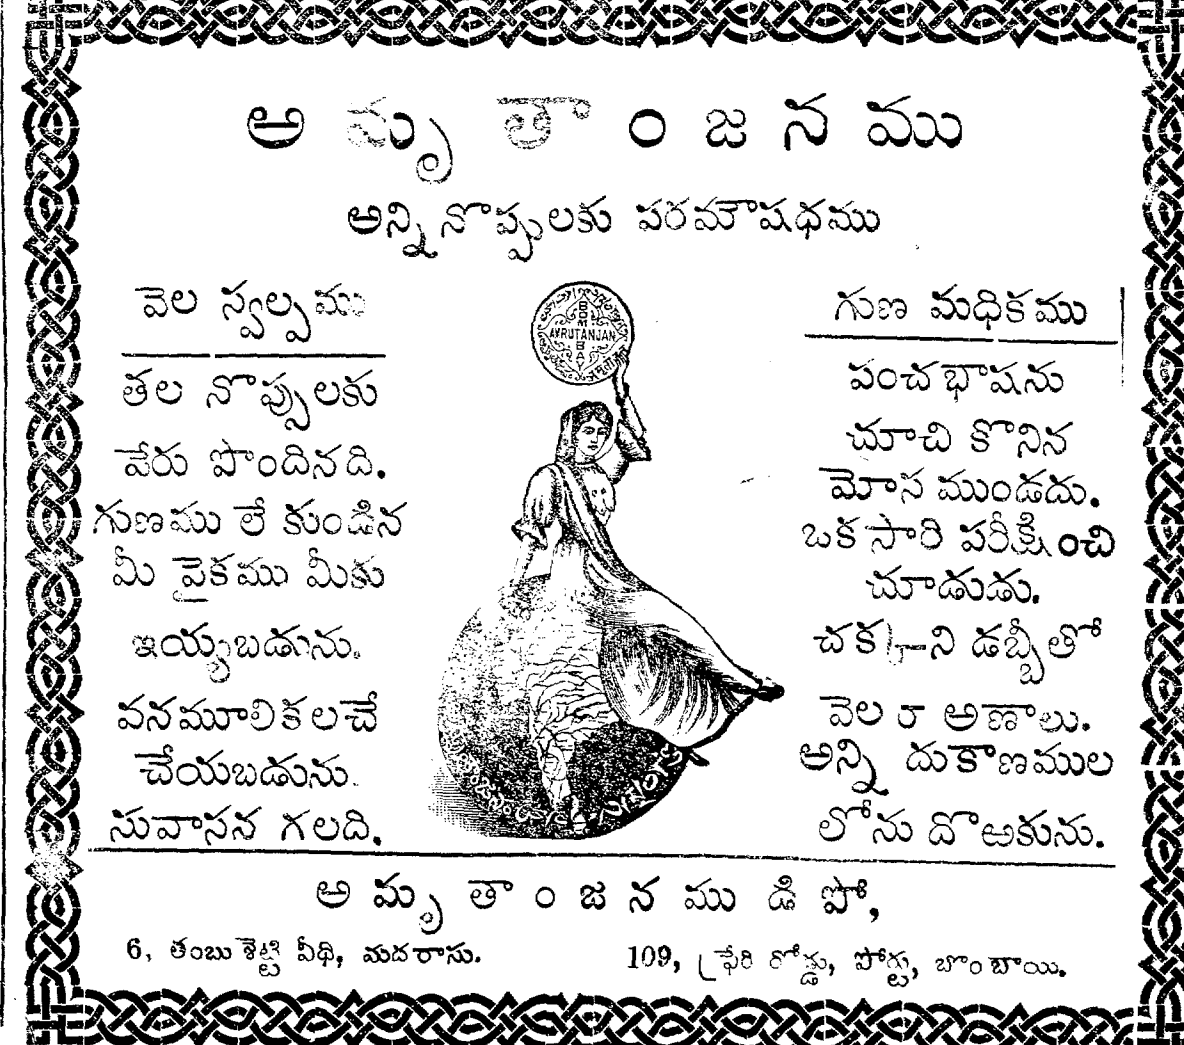 అమృతాంజనము
అన్నినొప్పులకు పరమౌషధము
వెల స్వల్పము
తల నొప్పులకు
పేరు పొందినది.
గుణము లే కుండిన
మీ పైకము మీకు
ఇయ్యబడును.
వనమూలికలచే
చేయబడును.
సువాసన గలది.
BOMBAY
AMRUTANJAN
గుణ మధికము
పంచభాషను
చూచి కొనిన
మోస ముండదు.
ఒకసారి పరీక్షించి
చూడుడు.
చక్కని డబ్బీతో
వెల ౧౮ అణాలు.
అన్ని దుకాణముల
లోను దొఱకును.
అమృతాంజనము డిపో,
6, తంబుశెట్టి వీథి, మదరాసు.
109, ఫ్రేరి రోడ్డు, పోర్టు, బొంబాయి.